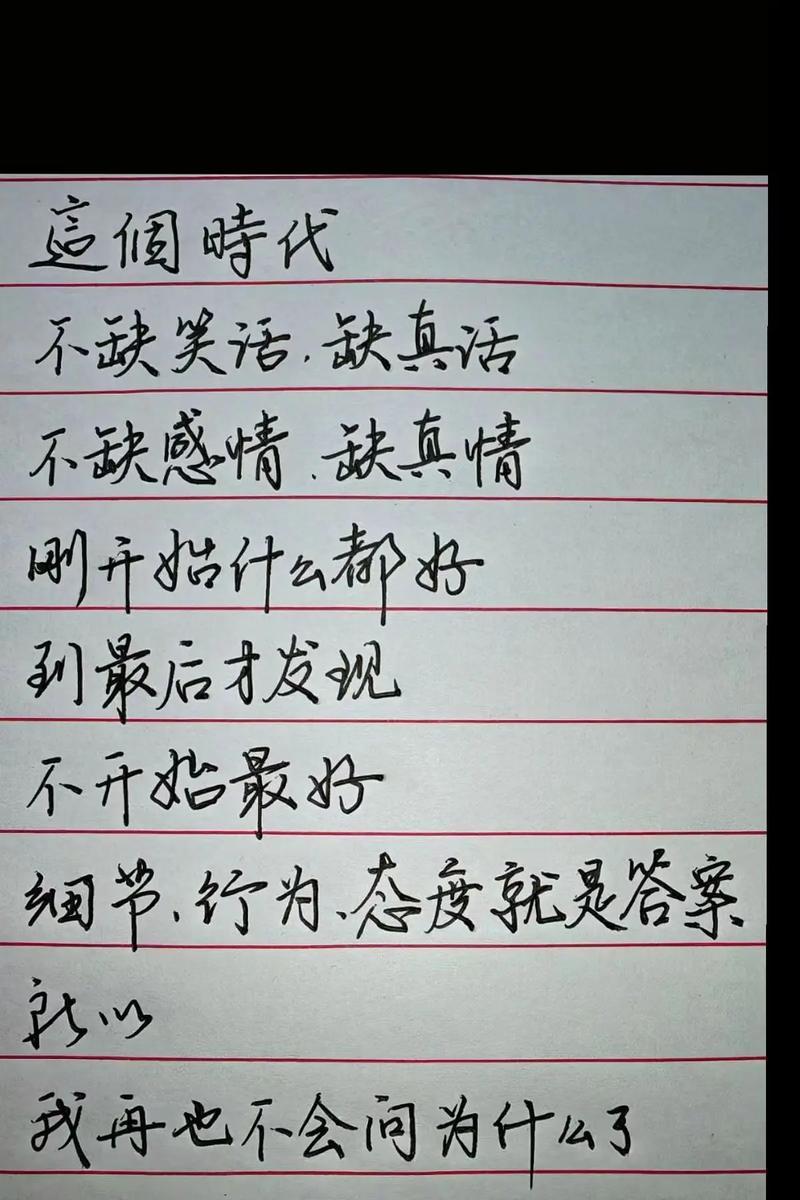 這個時代
不缺笑话,缺真话
不缺感情,缺真情
刚开始什么都好
到最后才发现
不开始最好
细节、行为、态度就是答案
所以
我再也不会问为什么了